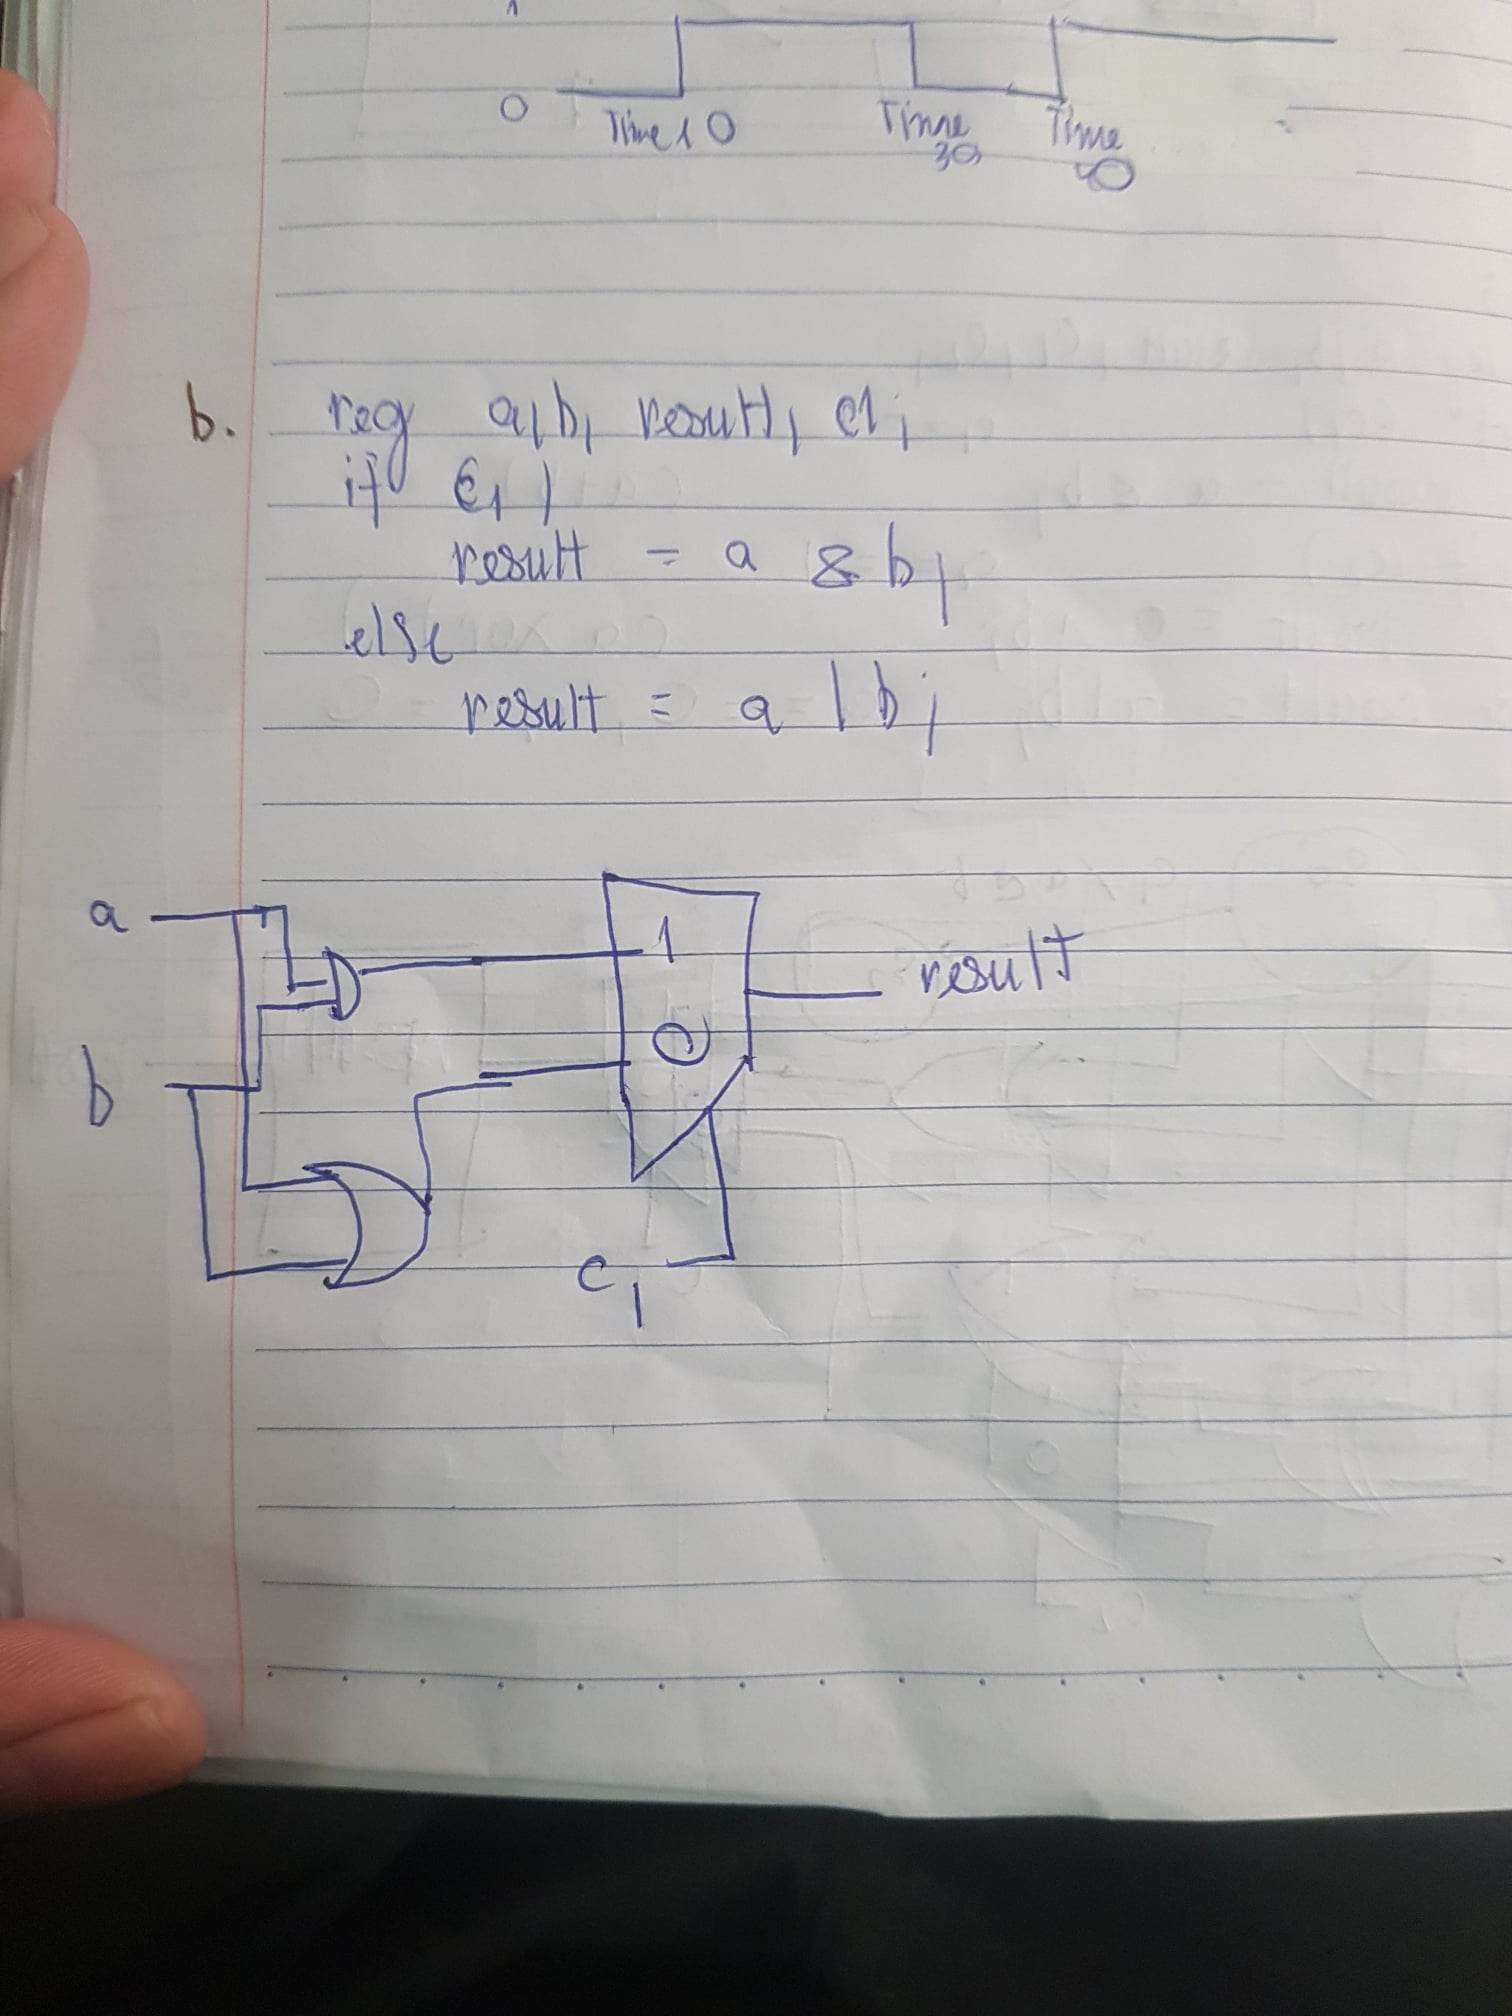 1
0
Time 10 Time 30 Time
b. reg a, b, result, c1;
if (c1)
result = a & b;
else
result = a | b;
a
1
result
0
b
c1